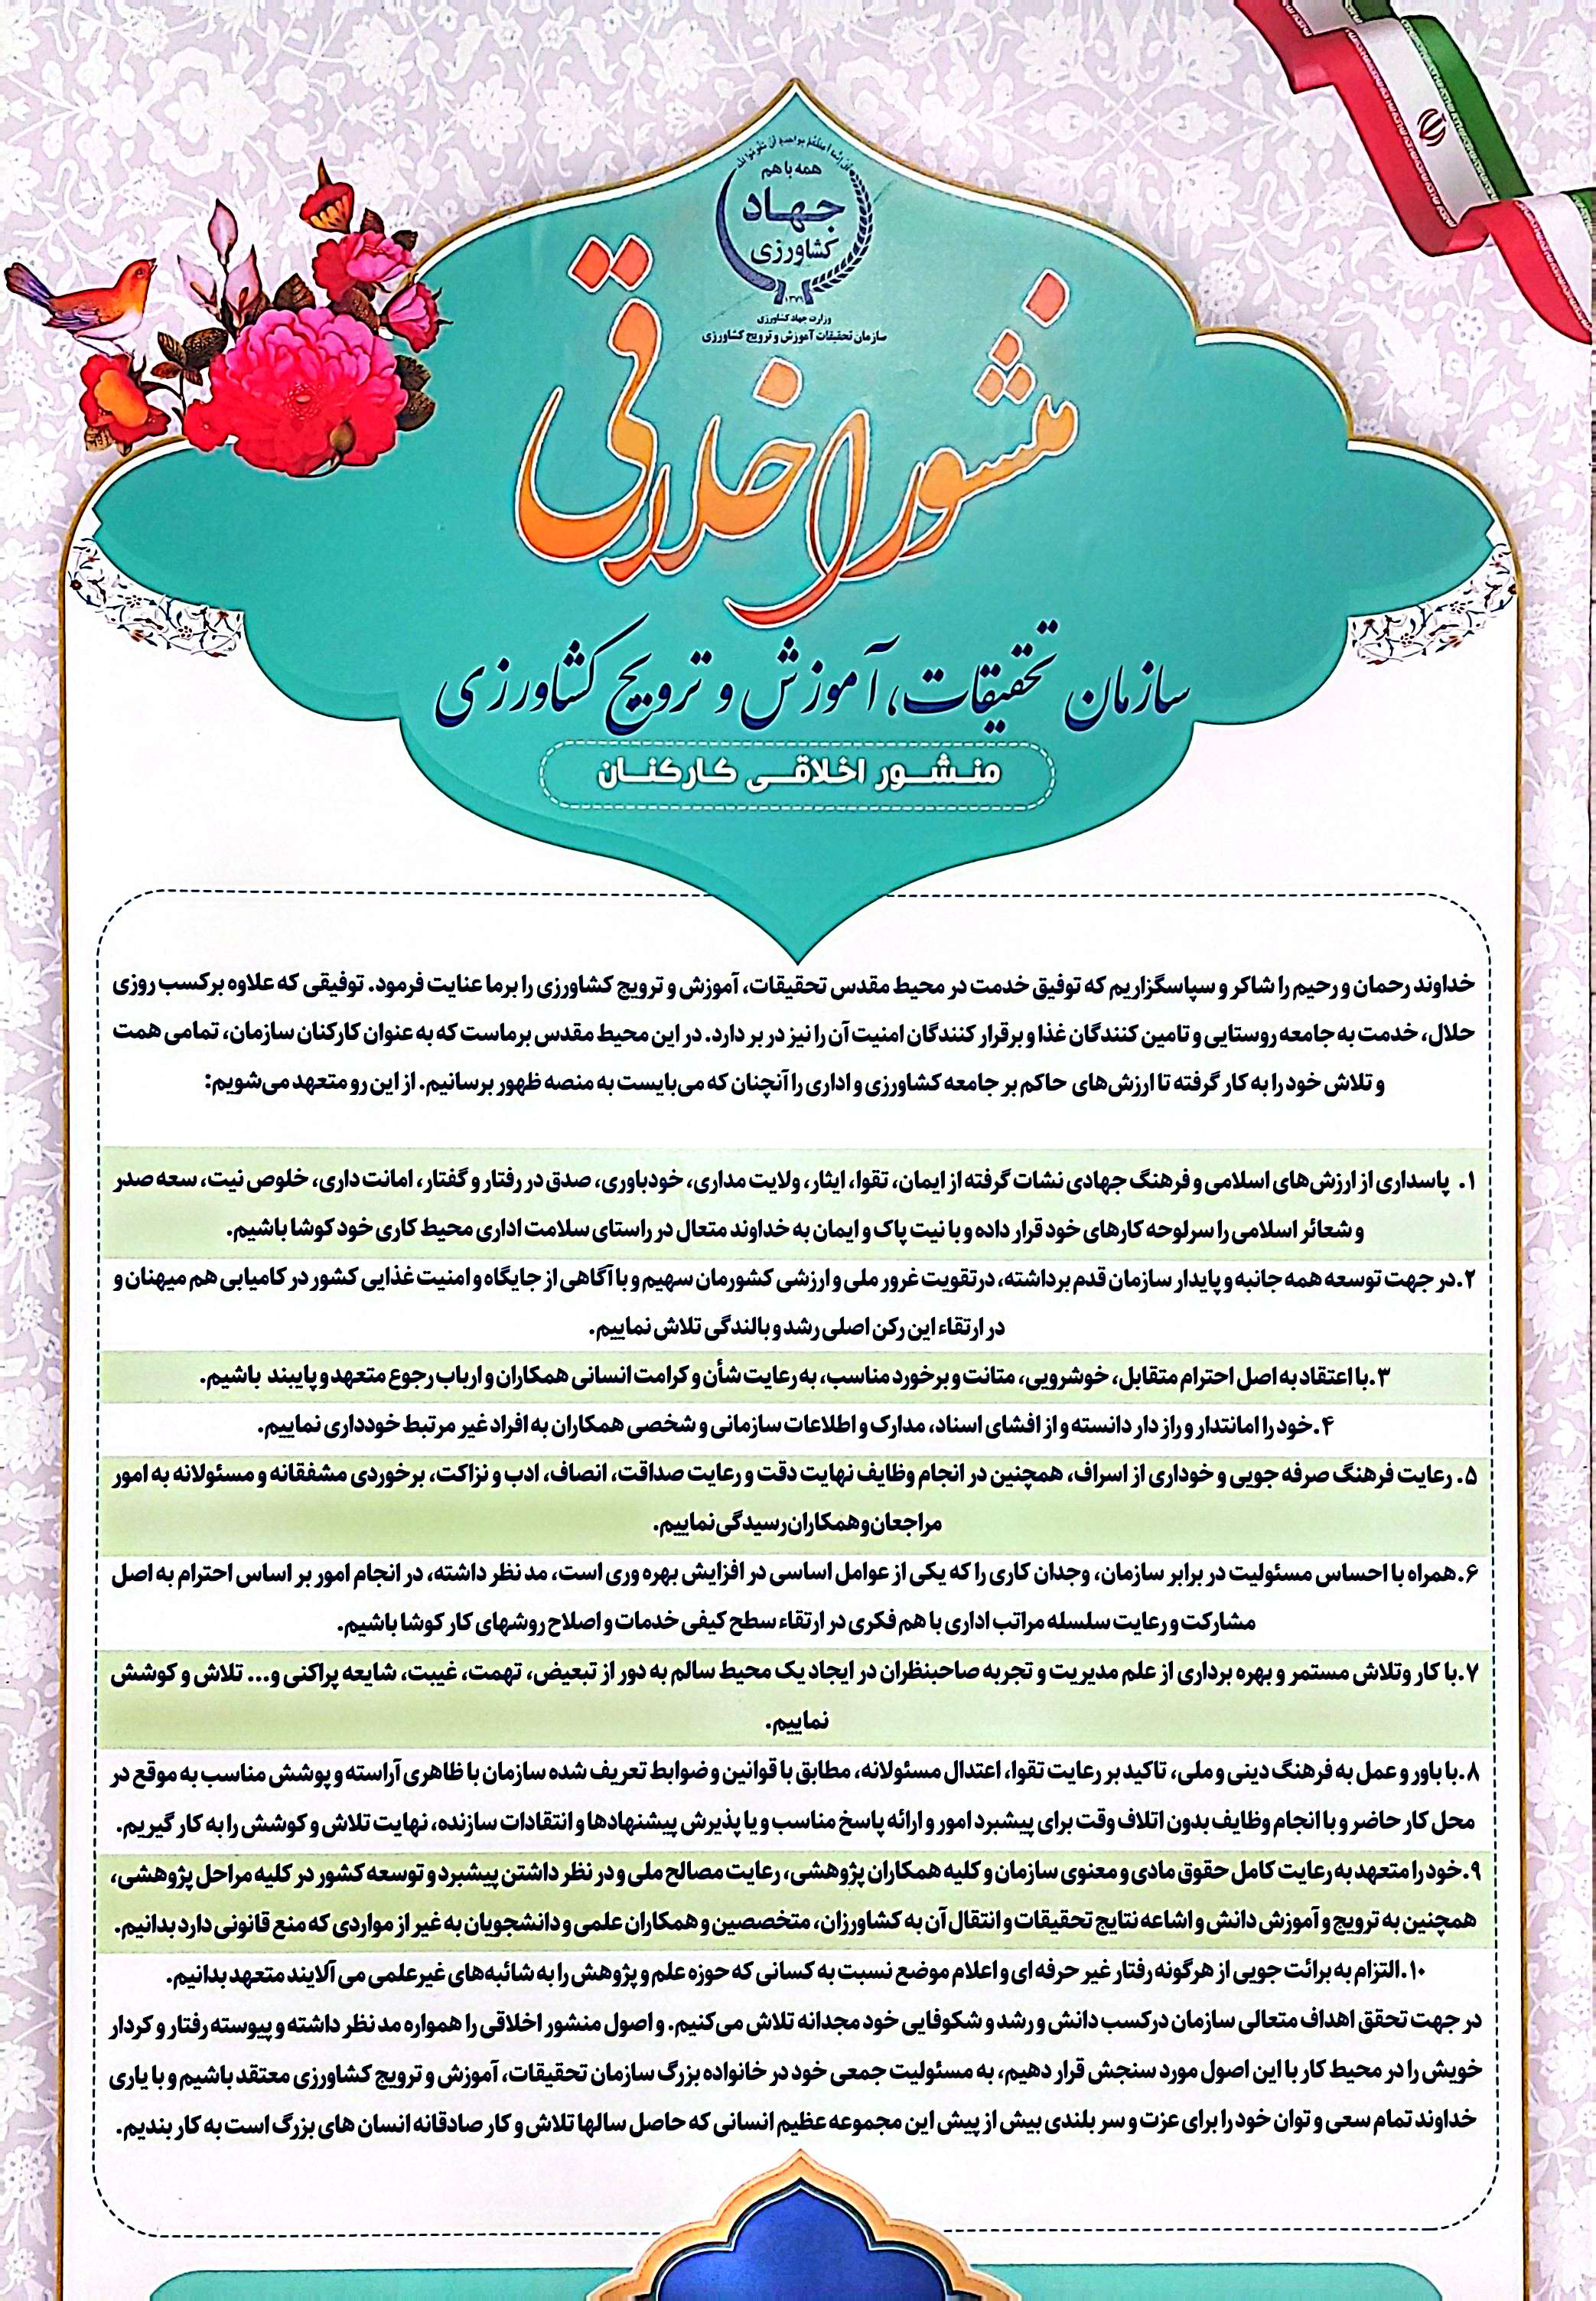 همه با هم
جهاد
کشاورزی
۱۳۷۹
وزارت جهاد کشاورزی
سازمان تحقیقات آموزش و ترویج کشاورزی
منشور اخلاقی
سازمان تحقیقات، آموزش و ترویج کشاورزی
منشور اخلاقی کارکنان
خداوند رحمان و رحیم را شاکر و سپاسگزاریم که توفیق خدمت در محیط مقدس تحقیقات، آموزش و ترویج کشاورزی را برما عنایت فرمود. توفیقی که علاوه برکسب روزی
حلال، خدمت به جامعه روستایی و تامین کنندگان غذا و برقرار کنندگان امنیت آن را نیز در بر دارد. در این محیط مقدس برماست که به عنوان کارکنان سازمان، تمامی همت
و تلاش خود را به کار گرفته تا ارزش‌های حاکم بر جامعه کشاورزی و اداری را آنچنان که می‌بایست به منصه ظهور برسانیم. از این رو متعهد می‌شویم:
۱. پاسداری از ارزش‌های اسلامی و فرهنگ جهادی نشات گرفته از ایمان، تقوا، ایثار، ولایت مداری، خودباوری، صدق در رفتار و گفتار، امانت داری، خلوص نیت، سعه صدر
و شعائر اسلامی را سرلوحه کارهای خود قرار داده و با نیت پاک و ایمان به خداوند متعال در راستای سلامت اداری محیط کاری خود کوشا باشیم.
۲.در جهت توسعه همه جانبه و پایدار سازمان قدم برداشته، درتقویت غرور ملی و ارزشی کشورمان سهیم و با آگاهی از جایگاه و امنیت غذایی کشور در کامیابی هم میهنان و
در ارتقاء این رکن اصلی رشد و بالندگی تلاش نماییم.
۳.با اعتقاد به اصل احترام متقابل، خوشرویی، متانت و برخورد مناسب، به رعایت شأن و کرامت انسانی همکاران و ارباب رجوع متعهد و پایبند باشیم.
۴.خود را امانتدار و راز دار دانسته و از افشای اسناد، مدارک و اطلاعات سازمانی و شخصی همکاران به افراد غیر مرتبط خودداری نماییم.
۵. رعایت فرهنگ صرفه جویی و خوداری از اسراف، همچنین در انجام وظایف نهایت دقت و رعایت صداقت، انصاف، ادب و نزاکت، برخوردی مشفقانه و مسئولانه به امور
مراجعان و همکاران رسیدگی نماییم.
۶.همراه با احساس مسئولیت در برابر سازمان، وجدان کاری را که یکی از عوامل اساسی در افزایش بهره وری است، مد نظر داشته، در انجام امور بر اساس احترام به اصل
مشارکت و رعایت سلسله مراتب اداری با هم فکری در ارتقاء سطح کیفی خدمات و اصلاح روشهای کار کوشا باشیم.
۷.با کار وتلاش مستمر و بهره برداری از علم مدیریت و تجربه صاحبنظران در ایجاد یک محیط سالم به دور از تبعیض، تهمت، غیبت، شایعه پراکنی و... تلاش و کوشش
نماییم.
۸.با باور و عمل به فرهنگ دینی و ملی، تاکید بر رعایت تقوا، اعتدال مسئولانه، مطابق با قوانین و ضوابط تعریف شده سازمان با ظاهری آراسته و پوشش مناسب به موقع در
محل کار حاضر و با انجام وظایف بدون اتلاف وقت برای پیشبرد امور و ارائه پاسخ مناسب و یا پذیرش پیشنهادها و انتقادات سازنده، نهایت تلاش و کوشش را به کار گیریم.
۹.خود را متعهد به رعایت کامل حقوق مادی و معنوی سازمان و کلیه همکاران پژوهشی، رعایت مصالح ملی و در نظر داشتن پیشبرد و توسعه کشور در کلیه مراحل پژوهشی،
همچنین به ترویج و آموزش دانش و اشاعه نتایج تحقیقات و انتقال آن به کشاورزان، متخصصین و همکاران علمی و دانشجویان به غیر از مواردی که منع قانونی دارد بدانیم.
۱۰.التزام به برائت جویی از هرگونه رفتار غیر حرفه ای و اعلام موضع نسبت به کسانی که حوزه علم و پژوهش را به شائبه‌های غیرعلمی می آلایند متعهد بدانیم.
در جهت تحقق اهداف متعالی سازمان درکسب دانش و رشد و شکوفایی خود مجدانه تلاش می‌کنیم. و اصول منشور اخلاقی را همواره مد نظر داشته و پیوسته رفتار و کردار
خویش را در محیط کار با این اصول مورد سنجش قرار دهیم، به مسئولیت جمعی خود در خانواده بزرگ سازمان تحقیقات، آموزش و ترویج کشاورزی معتقد باشیم و با یاری
خداوند تمام سعی و توان خود را برای عزت و سر بلندی بیش از پیش این مجموعه عظیم انسانی که حاصل سالها تلاش و کار صادقانه انسان های بزرگ است به کار بندیم.